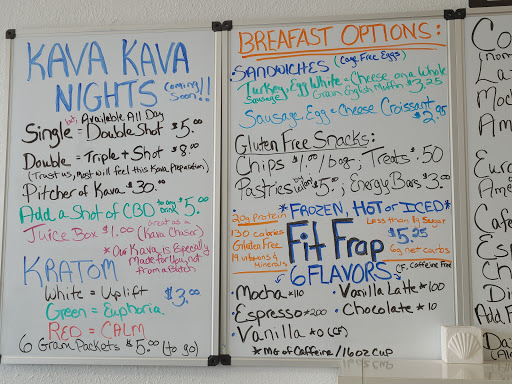 KAVA KAVA
NIGHTS Coming Soon!!
Available All Day
Single = Double Shot $5.00
Double = Triple + Shot $8.00
(Trust us, Most will feel this Kava Preparation)
Pitcher of Kava $30.00
Add a Shot of CBD to any drink $5.00
Juice Box $1.00 (Great as a Kava Chaser)
*Our Kava is Especially
Made for You, not
from a Batch
KRATOM
White = Uplift $3.00
Green = Euphoria
RED = CALM
6 Gram Packets $5.00 (to go)
BREAFAST OPTIONS:
• SANDWICHES (Cage Free Eggs)
Turkey Sausage, Egg White & Cheese on a Whole
Grain English Muffin $3.25
Sausage, Egg & Cheese Croissant
$2.95
Gluten Free Snacks:
Chips $1.00/bag; Treats $.50
Pastries $5.00; Energy Bars $3.00
*FROZEN, HOT or ICED*
20g Protein
130 calories
Gluten Free
19 vitamins &
Minerals
Fit Frap
Less than 1g Sugar
$5.25
6g net carbs
6 FLAVORS
CF, Caffeine Free
• Mocha *110
• Vanilla Latte *100
• Espresso *200
• Chocolate *10
• Vanilla *0 (CF)
*MG of Caffeine / 16oz CUP
Co
Lat
Moc
Am
Euro
Ame
Cafe
Esp
Ch
Di
Add F
Da